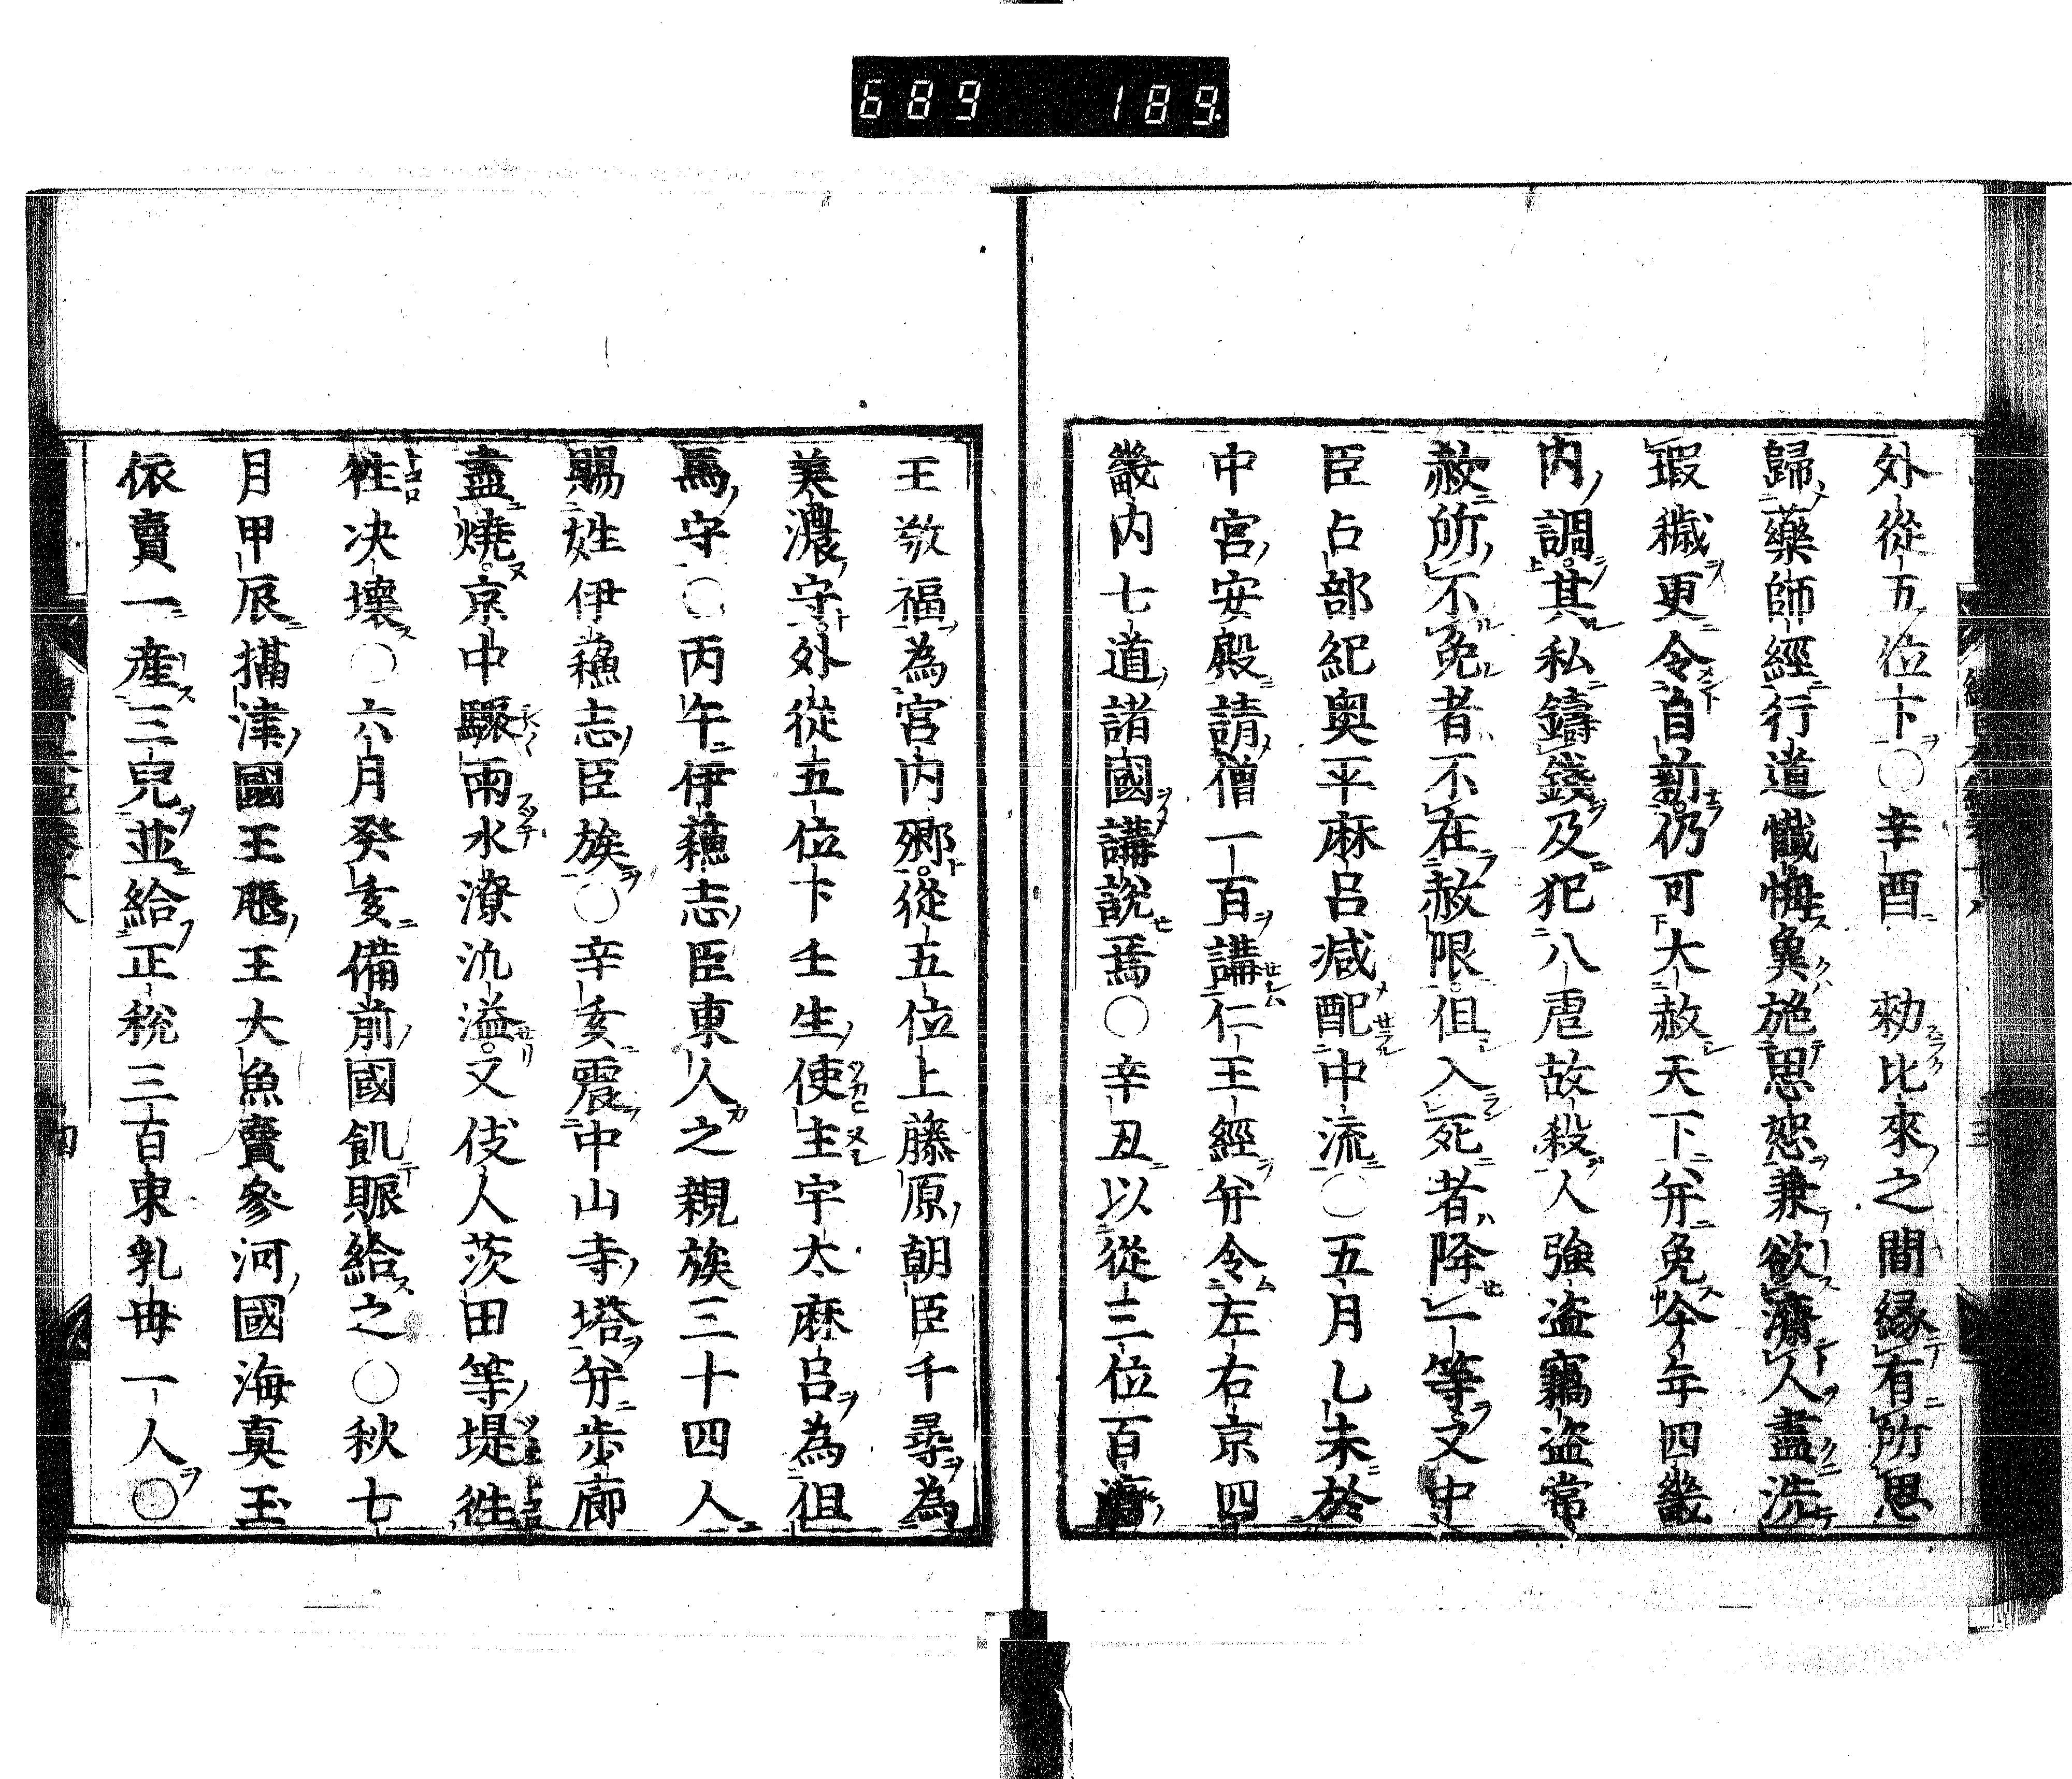 689 189
外從五位下〇辛酉 勑比來之間縁有所思
歸藥師經行道懺悔兾施恩恕兼欲濟人盡洗
瑕穢更令自新仍可大赦天下并免今年四畿
内調其私鑄錢及犯八虐故殺人強盗竊盗常
赦所不免者不在赦限但入死者降一等又中
臣占部紀奥平麻呂減配中流〇五月乙未於
中宮安殿請僧一百講仁王經并令左右京四
畿内七道諸國講説焉〇辛丑以從三位百濟
王敬福為宮内卿從五位上藤原朝臣千尋為
美濃守外從五位下壬生使主宇太麻呂為但
馬守〇丙午伊蘓志臣東人之親族三十四人
賜姓伊蘓志臣族〇辛亥震中山寺塔并歩廊
盡燒京中驟雨水潦汎溢又伎人茨田等堤徃
徃決壞〇六月癸亥備前國飢賑給之〇秋七
月甲辰攝津國王𠃵王大魚賣參河國海真玉
依賣一産三兒並給正税三百束乳母一人〇